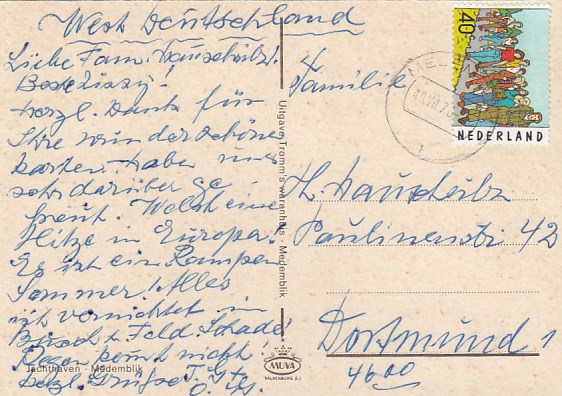 West Deutschland
Liebe Fam.
Beste Lissy!
herzl. Dank für
Ihre wunderschöne
Karten. haben uns
sehr darüber ge
freut. Welch eine
Hitze in Europa!
Es ist ein Rampen
Sommer! Alles
ist vernichtet in
Busch + Feld. Schade!
Regen kommt nicht!
herzl. Grüße
Jachthaven - Medemblik
Uitgave Tromm's warenhuis - Medemblik
MUVA
VALKENBURG (L.)
40c
NEDERLAND
Familie
H.
Paulinenstr 42
Dortmund 1
4600